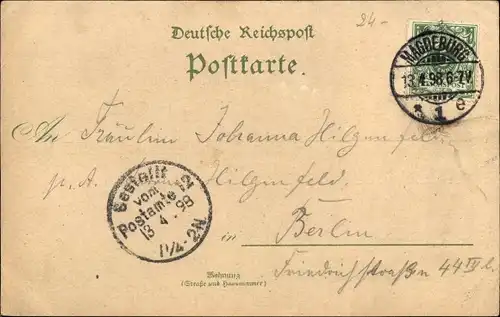 24-
Deutsche Reichspost
Postkarte.
MAGDEBURG
13.4.98.6-7V.
* 1 e
An Fräulein Johanna Hilgenfeld
p. A. Hilgenfeld.
Bestellt
vom
Postamte 2
13 4 98
1¼-2N
in Berlin
Wohnung
(Straße und Hausnummer)
Friedrichstraßen 44